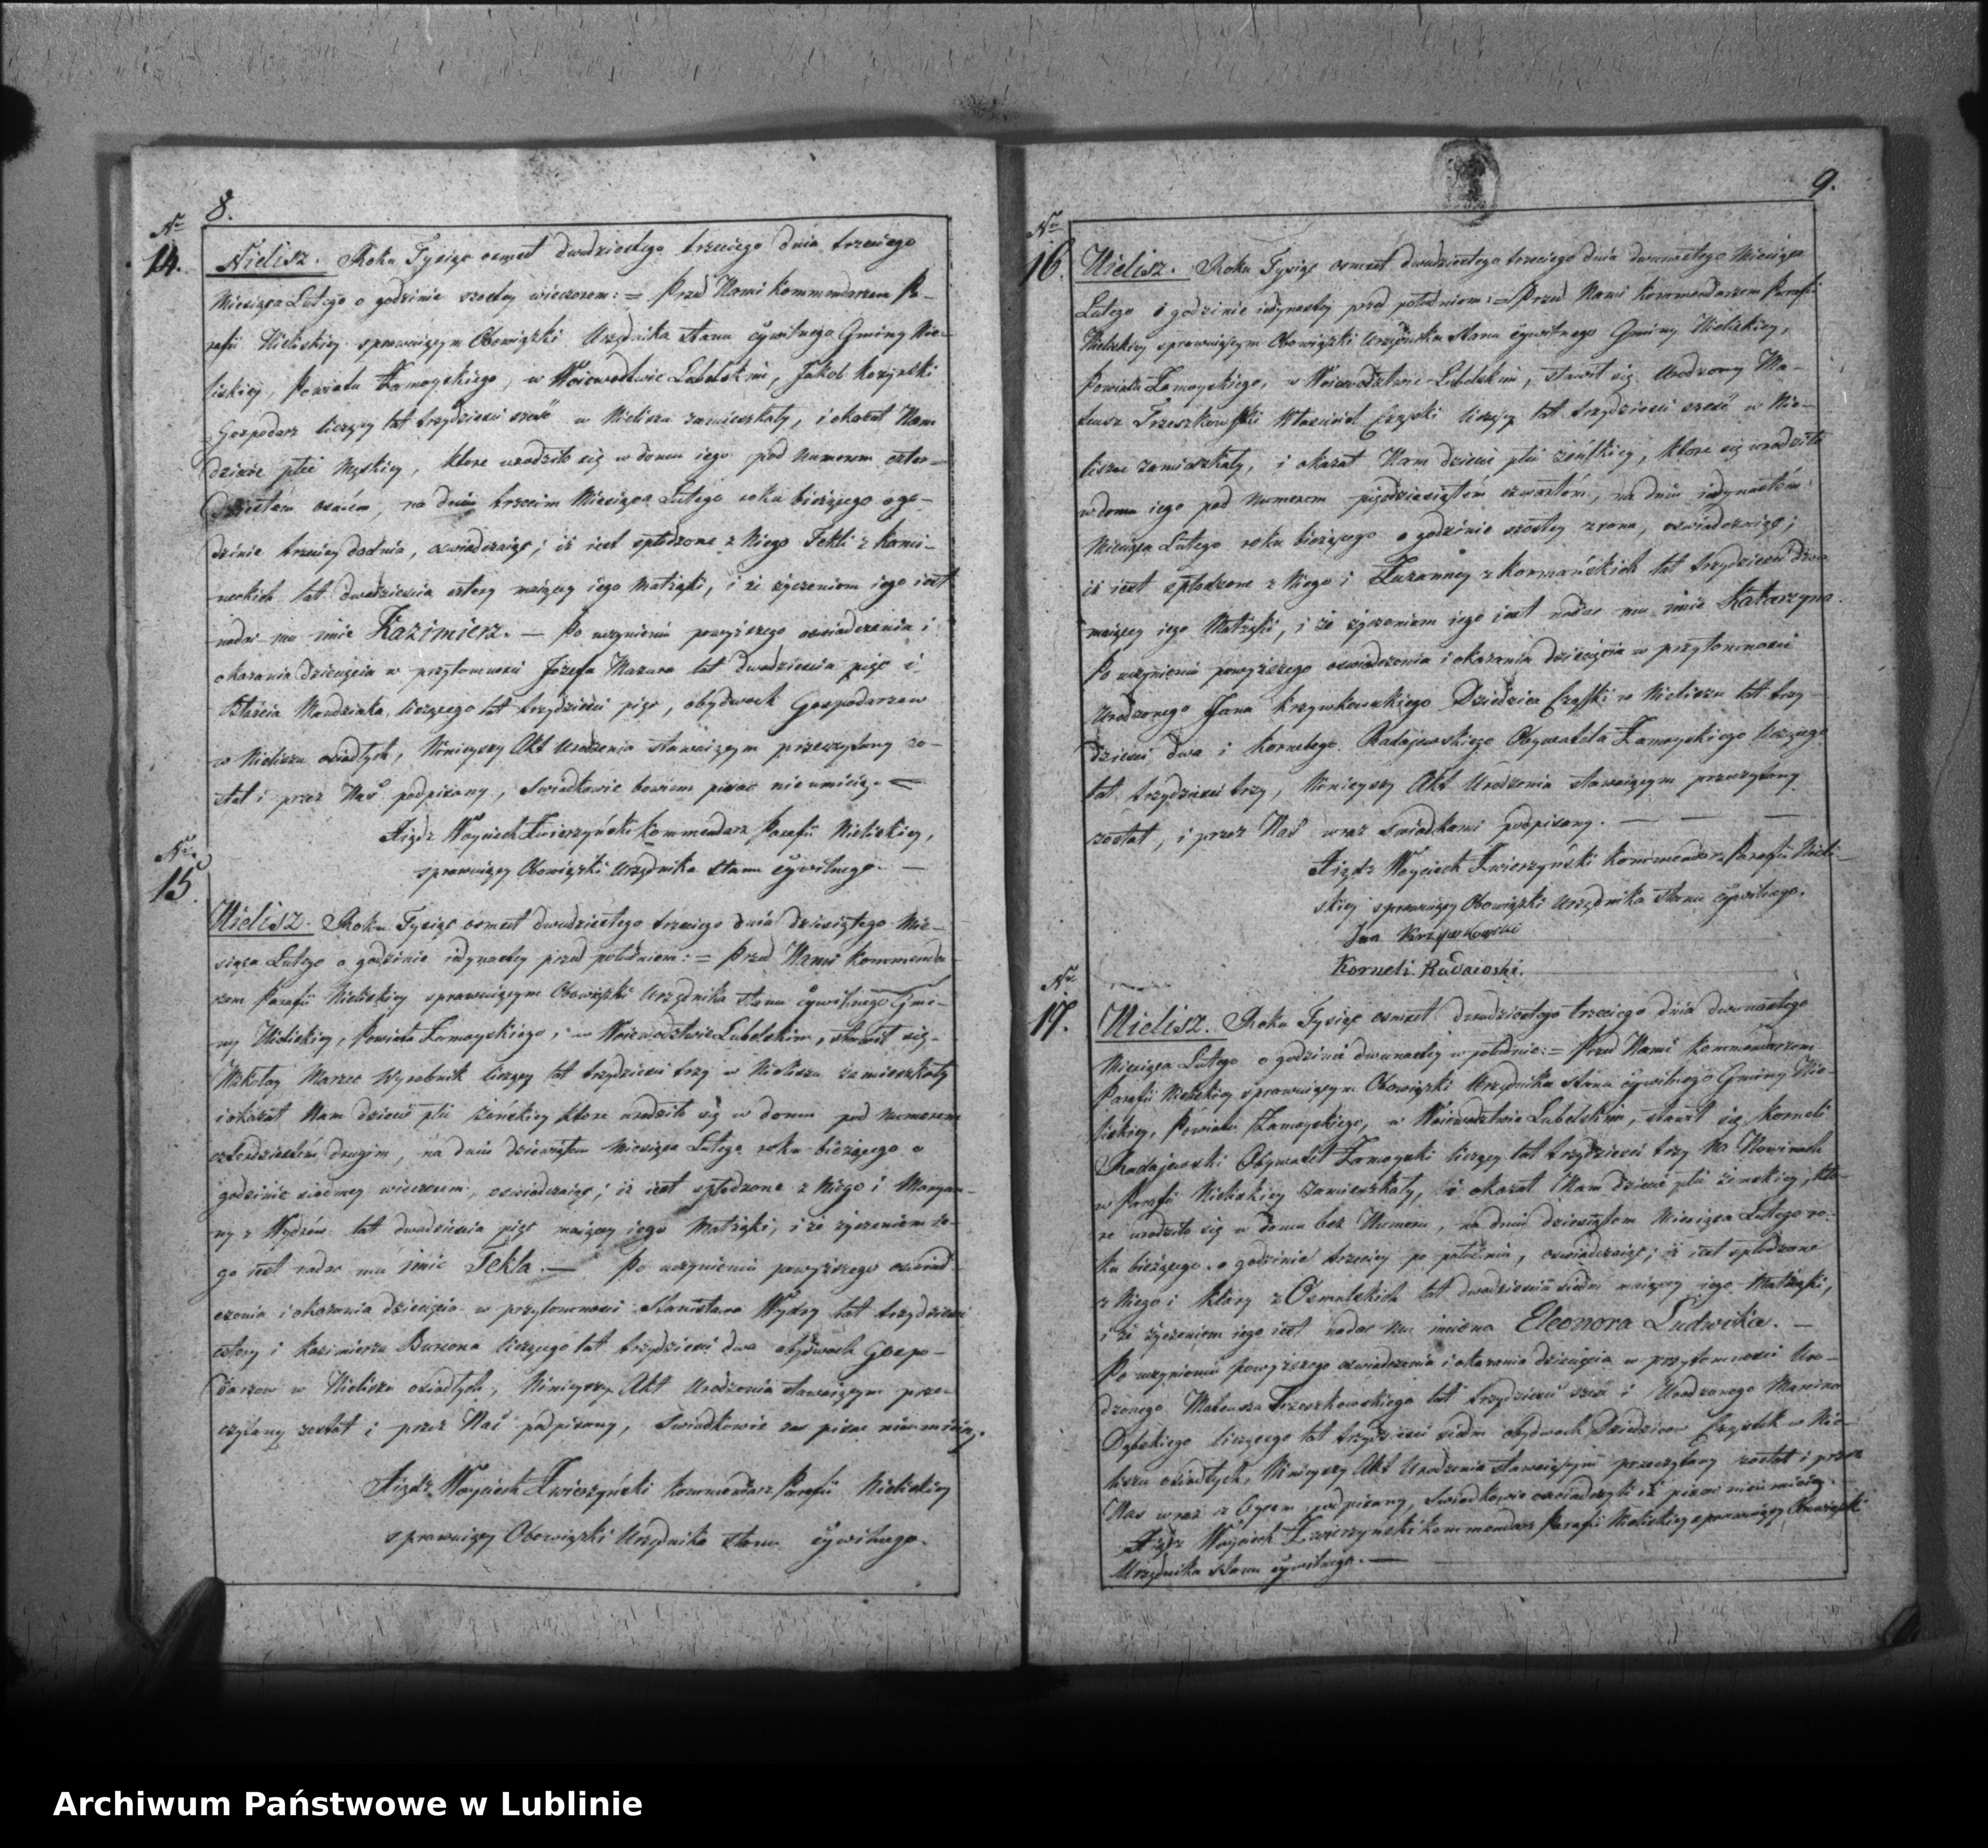 8.
Nr
14. Nielisz. Roku Tysiąc osmset dwudziestego trzeciego dnia trzeciego
Miesiąca Lutego o godzinie szostey wieczorem: = Przed Nami Kommendarzem Pa-
rafii Nieliskiey sprawuiącym Obowiązki Urzędnika Stanu Cywilnego Gminy Nie-
liskiey, Powiatu Zamoyskiego, w Woiewodztwie Lubelskim, Jakob
Gospodarz liczący lat trzydzieści sześć w Nieliszu zamieszkały, i okazał Nam
dziecie płci męskiey, ktore urodziło się w domu iego pod Numerem czter-
osmem, na dniu trzecim Miesiąca Lutego roku bieżącego ogo-
dzinie trzeciey dodnia, oswiadczaiąc; iż iest spłodzone z Niego Tekli z Kami-
neckich lat dwadzieścia cztery maiącey iego Małżąki, i że życzeniem iego iest
nadać mu imie Kazimierz. — Po uczynieniu powyższego oswiadczenia i
okazania dziecięcia w przytomności Józefa Mazura lat dwadzieścia pięć i
Mandziaka liczącego lat trzydzieści pięć, obydwoch Gospodarzow
w Nieliszu osiadłych, Ninieyszy Akt Urodzenia stawaiącym przeczytany zo-
stał i przez Nas podpisany, Swiadkowie bowiem pisać nie umieią. —
Xiądz Woyciech Zwierzyński Kommendarz Parafii Nieliskiey,
sprawuiący Obowiązki Urzędnika Stanu Cywilnego. —
Nr
15.
Nielisz. Roku Tysiąc osmset dwudziestego trzeciego dnia dziesiątego Mie-
siąca Lutego o godzinie iedynastey przed południem: = Przed Nami Kommenda-
rzem Parafii Nieliskiey sprawuiącym Obowiązki Urzędnika Stanu Cywilnego Gmi-
ny Nieliskiey, Powiatu Zamoyskiego, w Woiewodztwie Lubelskim, stawił się
Mikołay Marzec Wyrobnik liczący lat trzydzieści trzy w Nieliszu zamieszkały
i okazał Nam dziecie płci żeńskiey ktore urodziło się w domu pod Numerem
czterdziestém drugim, na dniu dziewiątem Miesiąca Lutego roku bieżącego o
godzinie siodmey wieczorem, oswiadczaiąc; iż iest spłodzone z Niego i Maryan-
ny z Wydrów lat dwadzieścia pięć maiącey iego Małżąki, i że życzeniem ie-
go iest nadać mu imie Tekla. — Po uczynieniu powyższego oswiad-
czenia i okazania dziecięcia w przytomności Stanisława Wydry lat trzydzieści
cztery i Kazimierza liczącego lat trzydzieści dwa obydwoch Gospo-
darzow w Nieliszu osiadłych, Ninieyszy Akt Urodzenia stawaiącym prze-
czytany został i przez Nas podpisany, Swiadkowie zas pisać nieumieią.
Xiądz Woyciech Zwierzyński Kommendarz Parafii Nieliskiey
sprawuiący Obowiązki Urzędnika Stanu Cywilnego.
9.
Nr
16. Nielisz. Roku Tysiąc osmset dwudziestego trzeciego dnia dwunastego Miesiąca
Lutego o godzinie iedynastey przed południem: = Przed Nami Kommendarzem Parafii
Nieliskiey sprawuiącym Obowiązki Urzędnika Stanu Cywilnego Gminy Nieliskiey,
Powiatu Zamoyskiego, w Woiewodztwie Lubelskim, stawił się Urodzony Ma-
teusz Trzeszkowski Właściciel Cząstki liczący lat trzydzieści sześć w Nie-
liszu zamieszkały, i okazał Nam dziecie płci żeńskiey, ktore się urodziło
w domu iego pod Numerem pięćdziesiątém czwartém, na dniu iedynastém
Miesiąca Lutego roku bieżącego o godzinie szostey zrana, oswiadczaiąc;
iż iest spłodzone z Niego i Zuzanney z lat trzydzieści dwa
maiącey iego Małżąki, i że życzeniem iego iest nadać mu imie Katarzyna.
Po uczynieniu powyższego oswiadczenia i okazania dziecięcia w przytomności
Urodzonego Jana Krzywkowskiego Dziedzica Cząstki w Nieliszu lat trzy-
dzieści dwa i Kornelego Radajewskiego Obywatela Zamoyskiego liczącego
lat trzydzieści trzy, Ninieyszy Akt Urodzenia stawaiącym przeczytany
został, i przez Nas wraz swiadkami podpisany. — — —
Xiądz Woyciech Zwierzyński Kommendarz Parafii Nieli-
skiey sprawuiący Obowiązki Urzędnika Stanu Cywilnego.
Jan Krzywkowski
Korneli Radaioski.
Nr
17. Nielisz. Roku Tysiąc osmset dwudziestego trzeciego dnia dwunastego
Miesiąca Lutego o godzinie dwunastey w południe: = Przed Nami Kommendarzem
Parafii Nieliskiey sprawuiącym Obowiązki Urzędnika Stanu Cywilnego Gminy Nie-
liskiey, Powiatu Zamoyskiego, w Woiewodztwie Lubelskim, stawił się Korneli
Radajewski Obywatel Zamoyski liczący lat trzydzieści trzy na Nowinach
w Parafii Nieliskiey zamieszkały, i okazał Nam dziecie płci żenskiey, kto-
re urodziło się w domu bez Numeru, na dniu dziesiątem Miesiąca Lutego ro-
ku bieżącego o godzinie trzeciey po południu, oswiadczaiąc; iż iest spłodzone
z Niego i Klary z Osmulskich lat dwadzieścia siedm maiącey iego Małżąki,
i że życzeniem iego iest nadać mu imiona Eleonora Ludwika. —
Po uczynieniu powyższego oswiadczenia i okazania dziecięcia w przytomności Uro-
dzonego Mateusza Trzeszkowskiego lat trzydzieści sześć i Urodzonego Marcina
Dąbskiego liczącego lat trzydzieści siedm obydwoch Dziedzicow Cząstek w Nie-
liszu osiadłych, Ninieyszy Akt Urodzenia stawaiącym przeczytany został i przez
Nas wraz z Oycem podpisany, Swiadkowie oswiadczyli iż pisać nieumieią.
Xiądz Woyciech Zwierzyński Kommendarz Parafii Nieliskiey sprawuiący Obowiązki
Urzędnika Stanu Cywilnego. —
Archiwum Państwowe w Lublinie